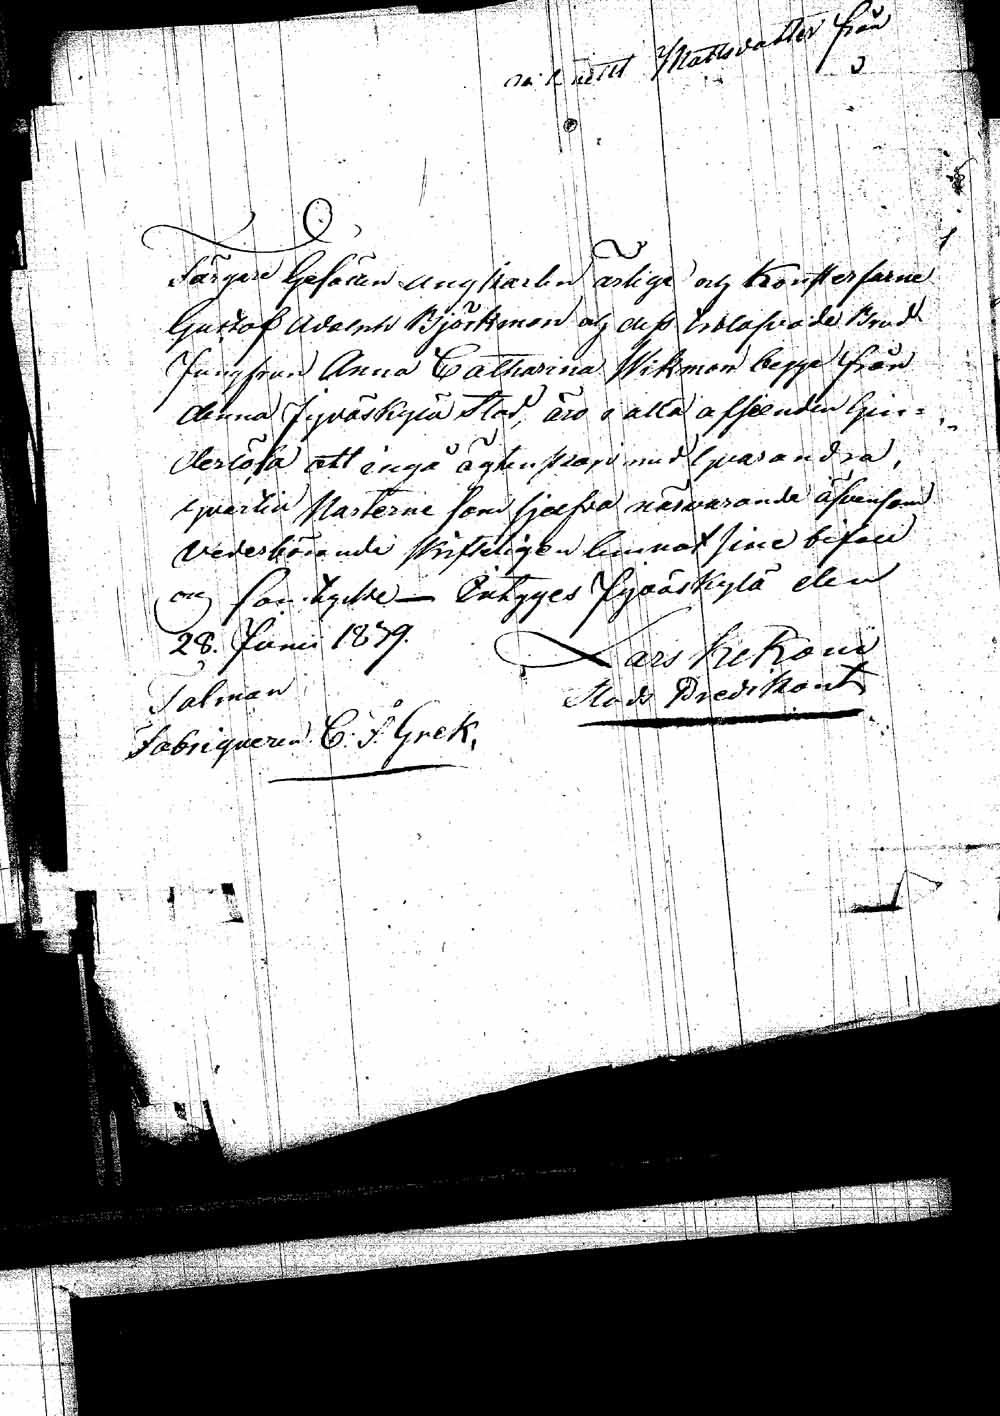 Mattsdotter från
Färgare Gesällen ungkarlen ärlige och Konsterfarne
Gustof Adolph Björkman och dess trolofvade Brud
Jungfrun Anna Catharina Wikman begge från
denna Jyväskylä Stad, äro i alla afseenden hin=
derlösa att ingå ägtenskap med hvarandra,
hvartill Parterne som sjelfva närvarande äfvensom
Vederbörande skrifteligen lemnat sine bifall
och samtycke — Intygas Jyväskylä den
28. Junii 1879.
Lars Kekoni
Stads Predikant
Talman
Fabriqueren C. J. Grek.